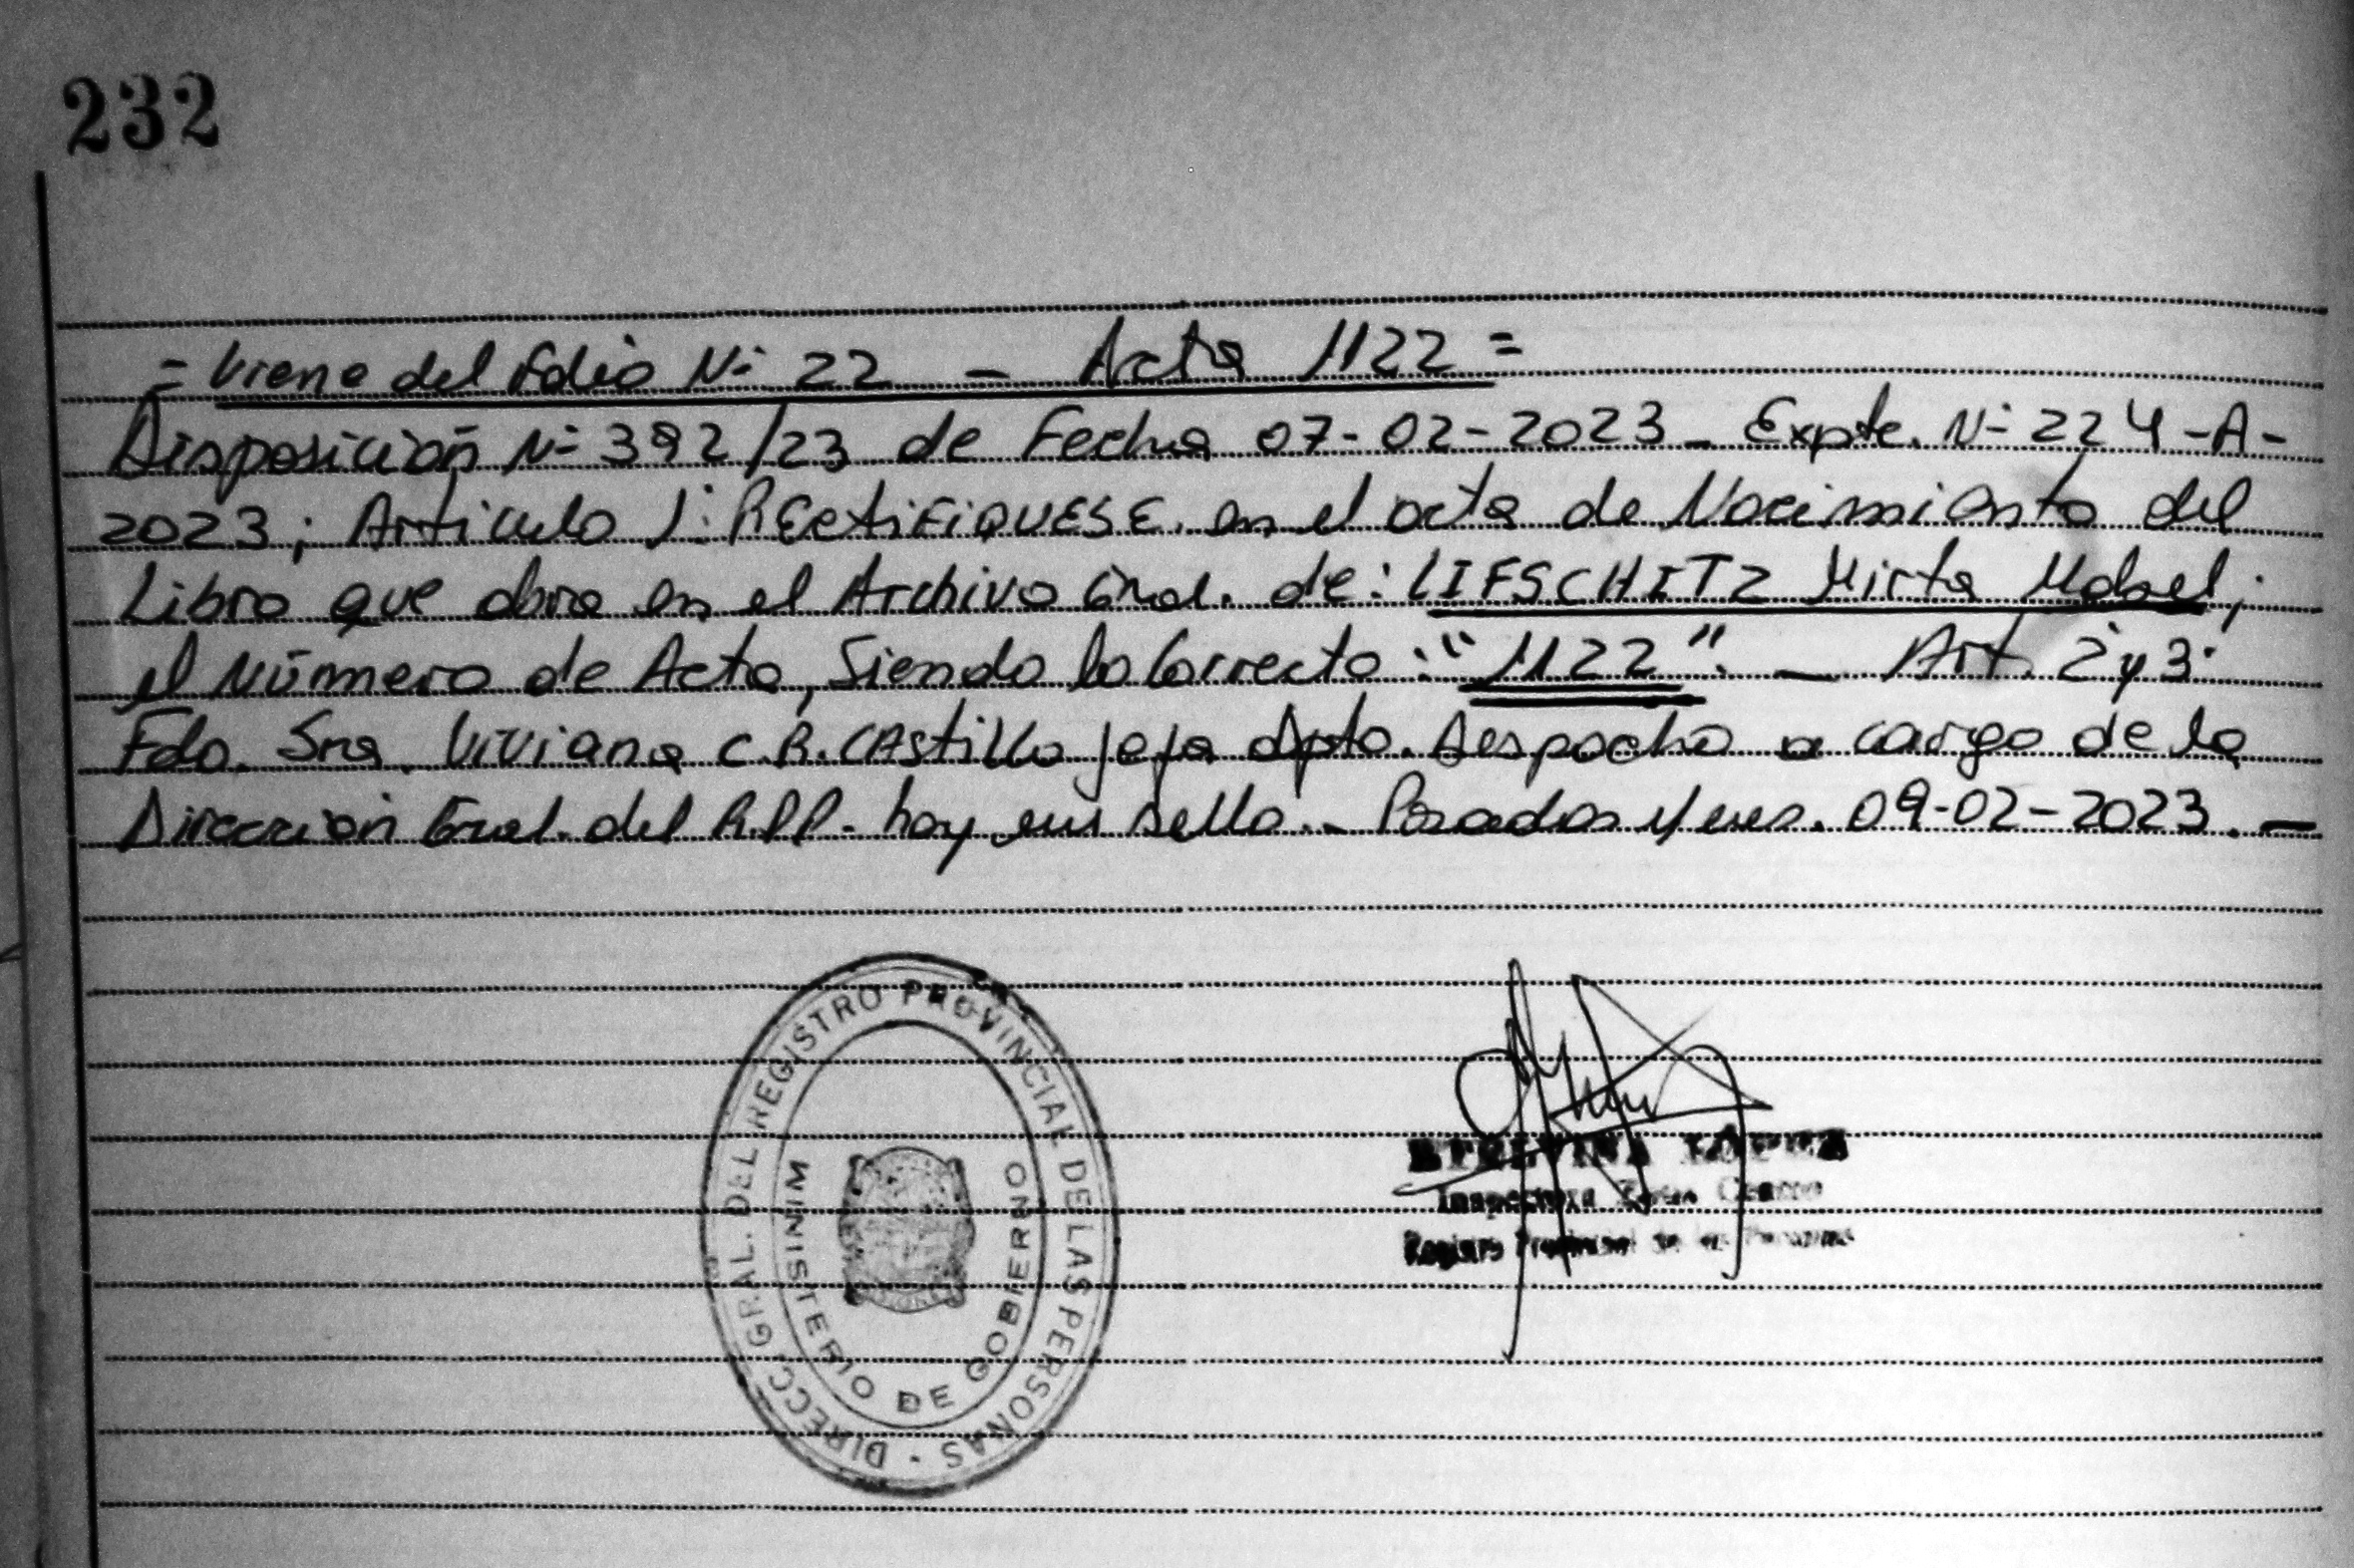 232
= Viene del folio N° 22 — Acta 1122 =
Disposición N° 392/23 de Fecha 07-02-2023 - Expte. N° 224-A-
2023; Articulo 1°: RECtiFiQUESE en el acta de Nacimiento del
Libro que obra en el Archivo Gral. de: LIFSCHITZ Mirta Mabel;
el Número de Acta, Siendo lo Correcto: "1122". — Art. 2° y 3°
Fdo. Sra. Viviana C.R. CAStillo Jefa Dpto. Despacho a cargo de la
Dirección Gral. del R.P.P. - hay un sello.- Posadas Mnes. 09-02-2023. —
DIRECC. GRAL. DEL REGISTRO PROVINCIAL DE LAS PERSONAS
MINISTERIO DE GOBIERNO
Inspectora
Registro Provincial de las Personas